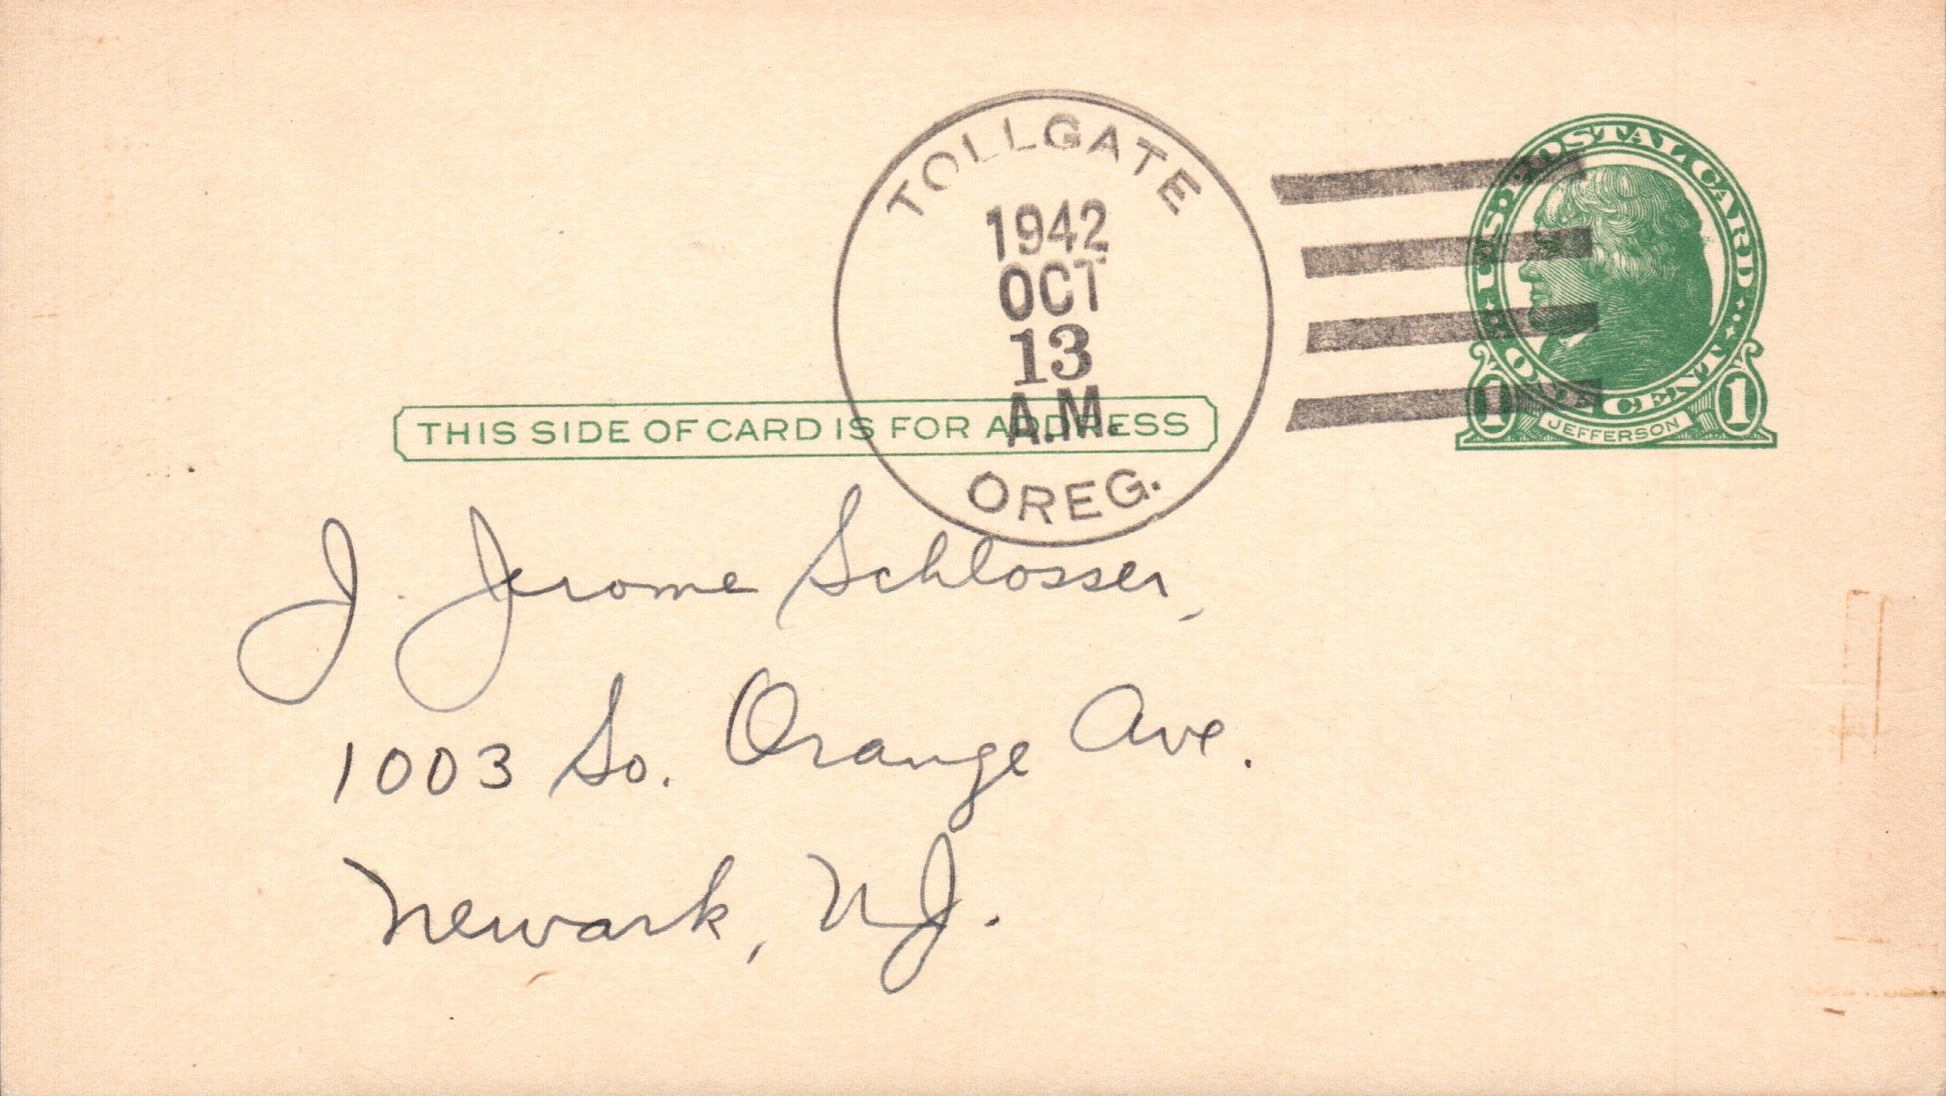 TOLLGATE
1942
OCT
13
A.M.
OREG.
U.S. POSTAL CARD
ONE CENT
1 JEFFERSON 1
THIS SIDE OF CARD IS FOR ADDRESS
J. Jerome Schlosser,
1003 So. Orange Ave.
Newark, N.J.